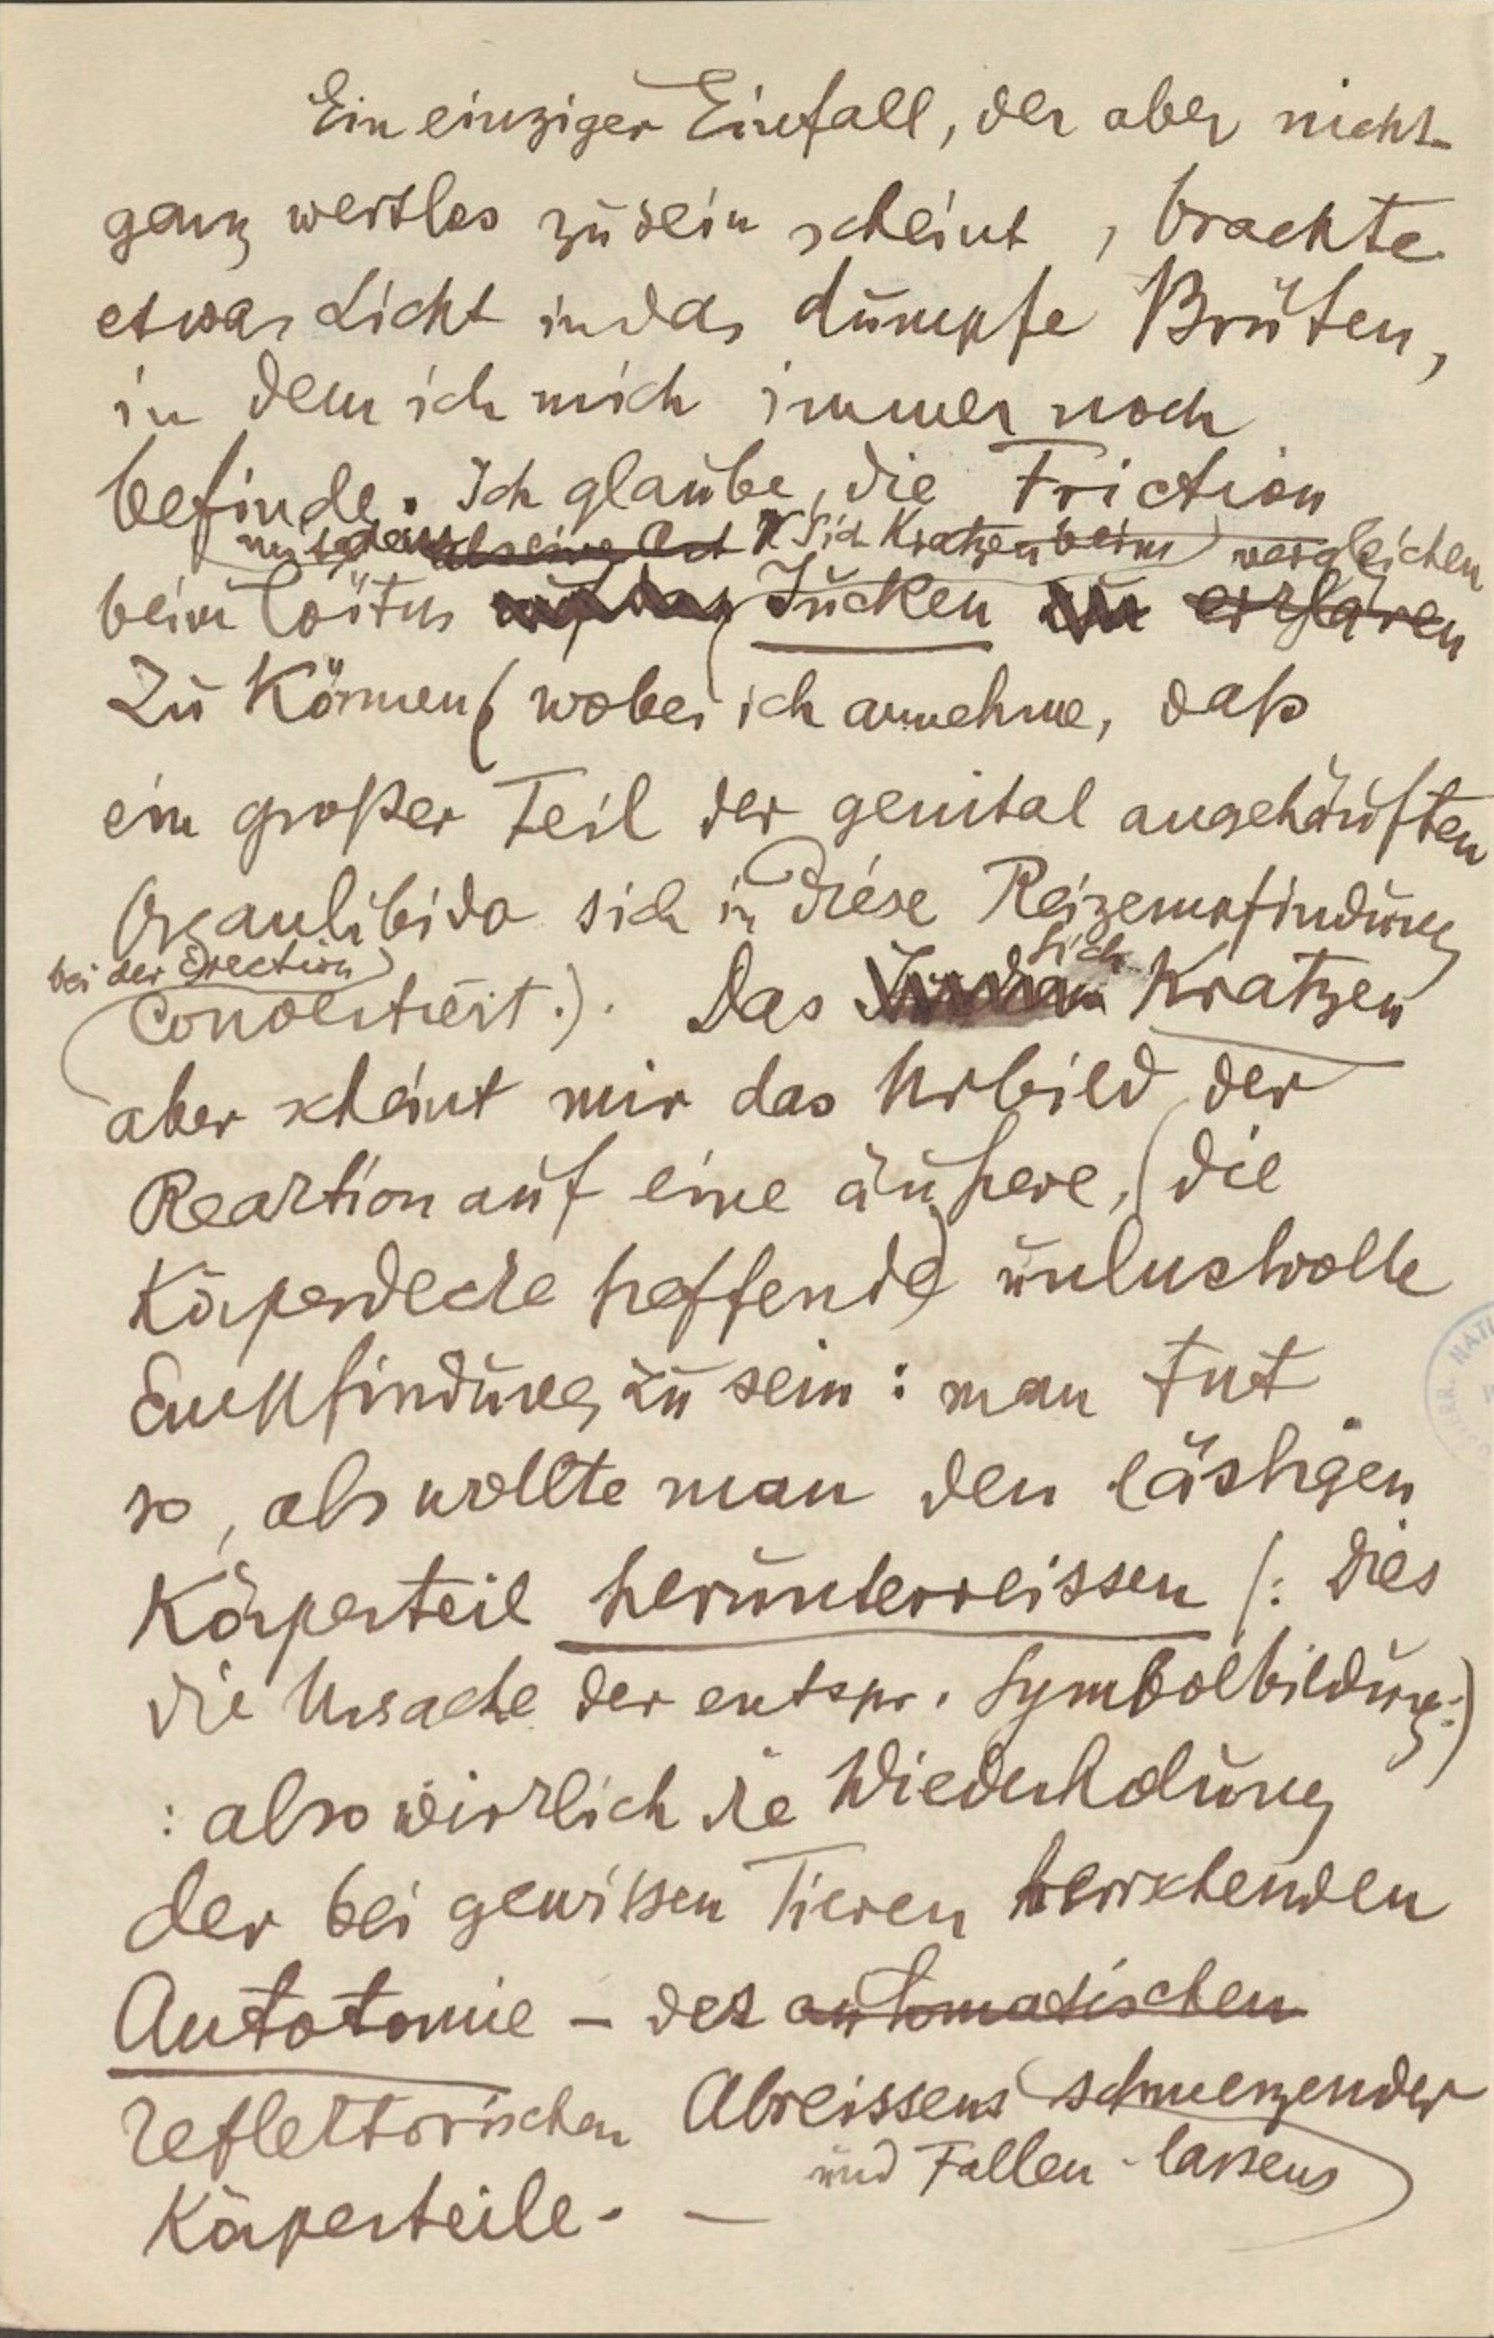 Ein einziger Einfall, der aber nicht
ganz wertlos zu sein scheint, brachte
etwas Licht in das dumpfe Brüten,
in dem ich mich immer noch
befinde. Ich glaube, die Friction
mit dem als eine Art Sich Kratzen beim vergleichen
beim Coitus Jucken zu erklären
zu können (wobei ich annehme, daß
ein großer Teil der genital angehäuften
Organlibido sich in diese Reizempfindung
bei der Erection
convertiert.). Das sich Kratzen
aber scheint mir das Urbild der
Reaktion auf eine äußere, (die
Körperdecke treffende) unlustvolle
Empfindung zu sein: man tut
so, als wollte man den lästigen
Körperteil herunterreissen (: dies
die Ursache der entspr. Symbolbildung:)
: also wirklich die Wiederholung
der bei gewissen Tieren herrschenden
Autotomie – des automatischen
reflektorischen Abreissens schmerzender
und Fallen-lassens
Körperteile. —